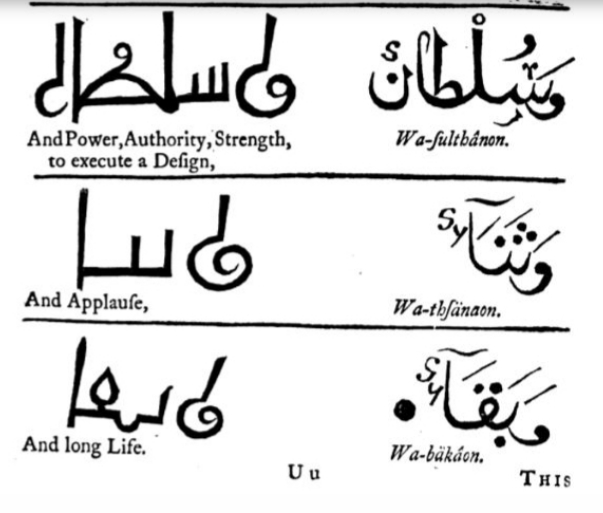 وسلطان وَسُلْطَانٌ
And Power, Authority, Strength, Wa-ſulthânon.
to execute a Deſign,
وثنا وَثَنَآءٌ
And Applauſe, Wa-thſänaon.
وبقا وَبَقَآءٌ
And long Life. Wa-bäkáon.
U u THIS